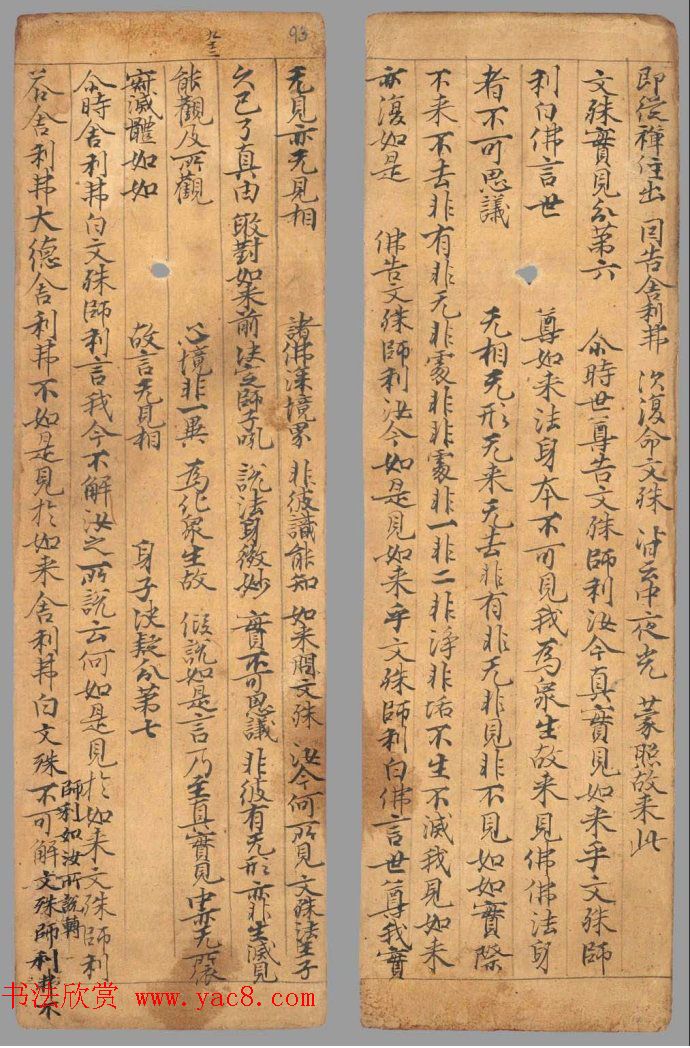 即從禪住出 因告舍利弗 次復命文殊 中夜光 蒙照故来此
文殊實見分第六 尒時世尊告文殊師利汝今真實見如来乎文殊師
利白佛言世 尊如来法身本不可見我為衆生故来見佛佛法身
者不可思議 无相无形无来无去非有非无非見非不見如如實際
不来不去非有非无非處非非處非一非二非淨非垢不生不滅我見如来
亦復如是 佛告文殊師利汝今如是見如来乎文殊師利白佛言世尊我實
93
无見亦无見相 諸佛深境界 非彼識能知 如来問文殊 汝今何所見 文殊法王子
久已了真由 敢對如来前 决定師子吼 說法身微妙 實不可思議 非彼有无形 亦非生滅見
能觀及所觀 心境非一異 為化衆生故 假說如是言 乃至真實見 中亦无
寂滅體如如 故言无見相 身子决疑分第七
尒時舍利弗白文殊師利言我今不解汝之所說云何如是見於如来文殊師利
荅舍利弗大德舍利弗不如是見於如来舍利弗白文殊師利如汝所說轉不可解文殊師利
书法欣赏 www.yac8.com